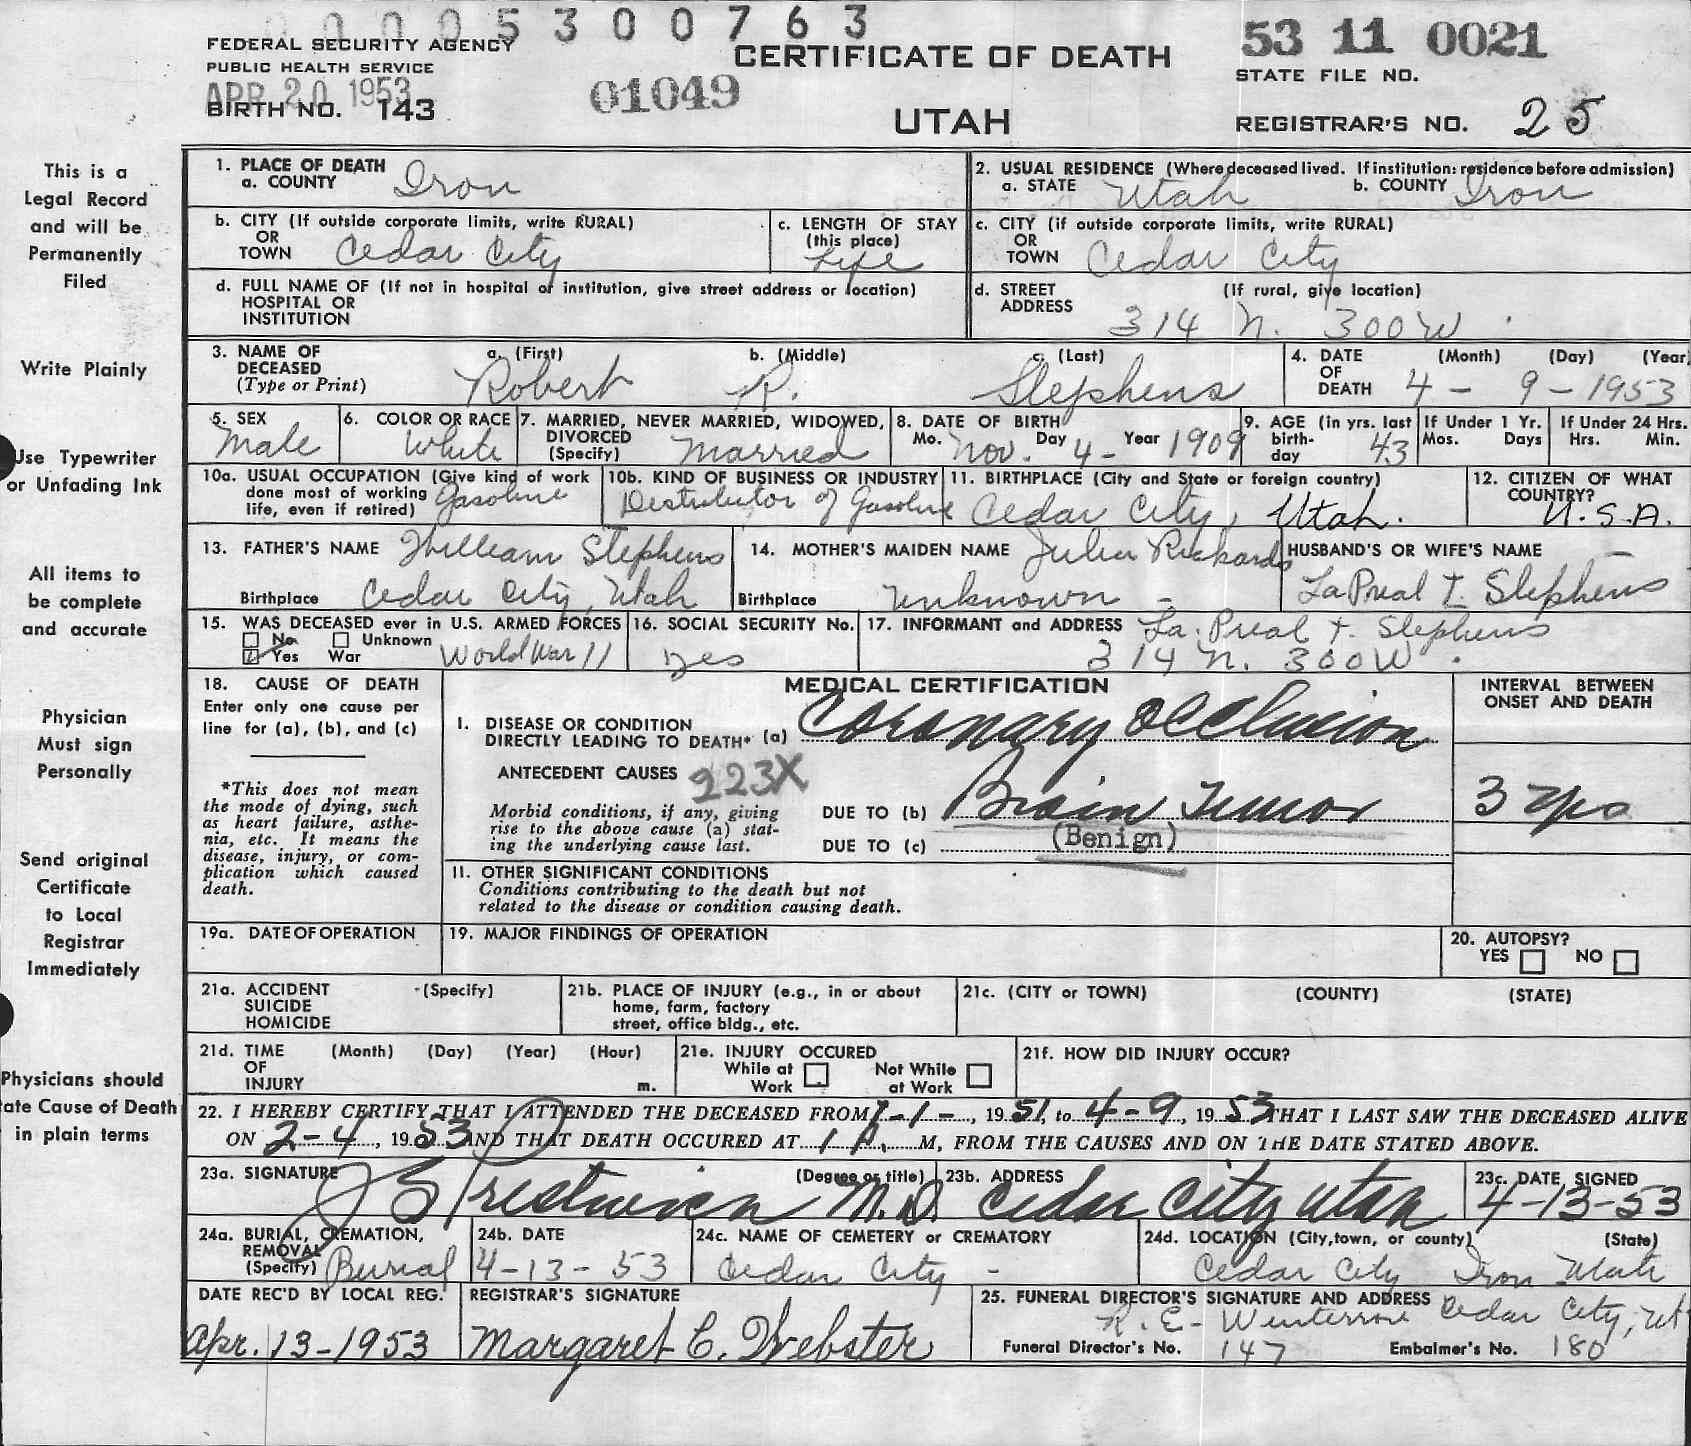 0 0 0 0 5 3 0 0 7 6 3
FEDERAL SECURITY AGENCY
PUBLIC HEALTH SERVICE
APR 20 1953
BIRTH NO. 143
01049
CERTIFICATE OF DEATH
UTAH
53 11 0021
STATE FILE NO.
REGISTRAR'S NO. 25
This is a
Legal Record
and will be
Permanently
Filed
Write Plainly
Use Typewriter
or Unfading Ink
All items to
be complete
and accurate
Physician
Must sign
Personally
Send original
Certificate
to Local
Registrar
Immediately
Physicians should
ate Cause of Death
in plain terms
1. PLACE OF DEATH
a. COUNTY Iron
2. USUAL RESIDENCE (Where deceased lived. If institution: residence before admission)
a. STATE Utah b. COUNTY Iron
b. CITY (If outside corporate limits, write RURAL)
OR
TOWN Cedar City
c. LENGTH OF STAY
(this place)
Life
c. CITY (if outside corporate limits, write RURAL)
OR
TOWN Cedar City
d. FULL NAME OF (If not in hospital or institution, give street address or location)
HOSPITAL OR
INSTITUTION
d. STREET (If rural, give location)
ADDRESS 314 N. 300 W
3. NAME OF DECEASED
(Type or Print)
a. (First) b. (Middle) c. (Last)
Robert R. Stephens
4. DATE OF DEATH (Month) (Day) (Year)
4 - 9 - 1953
5. SEX
Male
6. COLOR OR RACE
White
7. MARRIED, NEVER MARRIED, WIDOWED,
DIVORCED
(Specify) Married
8. DATE OF BIRTH
Mo. Nov. Day 4- Year 1909
9. AGE (in yrs. last
birth-
day 43
If Under 1 Yr.
Mos. Days
If Under 24 Hrs.
Hrs. Min.
10a. USUAL OCCUPATION (Give kind of work
done most of working
life, even if retired) Gasoline
10b. KIND OF BUSINESS OR INDUSTRY
Distributor of Gasoline
11. BIRTHPLACE (City and State or foreign country)
Cedar City, Utah.
12. CITIZEN OF WHAT
COUNTRY?
U.S.A.
13. FATHER'S NAME William Stephens
Birthplace Cedar City, Utah
14. MOTHER'S MAIDEN NAME Julia Rickards
Birthplace Unknown -
HUSBAND'S OR WIFE'S NAME
LaPreal T. Stephens
15. WAS DECEASED ever in U.S. ARMED FORCES
No Unknown
Yes War World War II
16. SOCIAL SECURITY No.
yes
17. INFORMANT and ADDRESS La Preal T. Stephens
314 N. 300 W.
18. CAUSE OF DEATH
Enter only one cause per
line for (a), (b), and (c)
*This does not mean
the mode of dying, such
as heart failure, asthe-
nia, etc. It means the
disease, injury, or com-
plication which caused
death.
MEDICAL CERTIFICATION
INTERVAL BETWEEN
ONSET AND DEATH
I. DISEASE OR CONDITION
DIRECTLY LEADING TO DEATH* (a) Coronary Occlusion
ANTECEDENT CAUSES 223X
Morbid conditions, if any, giving
rise to the above cause (a) stat-
ing the underlying cause last.
DUE TO (b) Brain Tumor 3 yrs
(Benign)
DUE TO (c)
11. OTHER SIGNIFICANT CONDITIONS
Conditions contributing to the death but not
related to the disease or condition causing death.
19a. DATE OF OPERATION
19. MAJOR FINDINGS OF OPERATION
20. AUTOPSY?
YES NO
21a. ACCIDENT (Specify)
SUICIDE
HOMICIDE
21b. PLACE OF INJURY (e.g., in or about
home, farm, factory
street, office bldg., etc.
21c. (CITY or TOWN) (COUNTY) (STATE)
21d. TIME (Month) (Day) (Year) (Hour)
OF
INJURY m.
21e. INJURY OCCURED
While at Work Not While at Work
21f. HOW DID INJURY OCCUR?
22. I HEREBY CERTIFY THAT I ATTENDED THE DECEASED FROM 7-1-, 1951, to 4-9, 1953 THAT I LAST SAW THE DECEASED ALIVE
ON 2-4, 1953 AND THAT DEATH OCCURED AT 1 A. M, FROM THE CAUSES AND ON THE DATE STATED ABOVE.
23a. SIGNATURE (Degree or title)
J S Prestwich M.D.
23b. ADDRESS
Cedar City Utah
23c. DATE SIGNED
4-13-53
24a. BURIAL, CREMATION,
REMOVAL
(Specify) Burial
24b. DATE
4-13-53
24c. NAME OF CEMETERY or CREMATORY
Cedar City -
24d. LOCATION (City, town, or county) (State)
Cedar City Iron Utah
DATE REC'D BY LOCAL REG.
Apr. 13-1953
REGISTRAR'S SIGNATURE
Margaret C. Webster
25. FUNERAL DIRECTOR'S SIGNATURE AND ADDRESS Cedar City, Ut
R. E.
Funeral Director's No. 147 Embalmer's No. 180